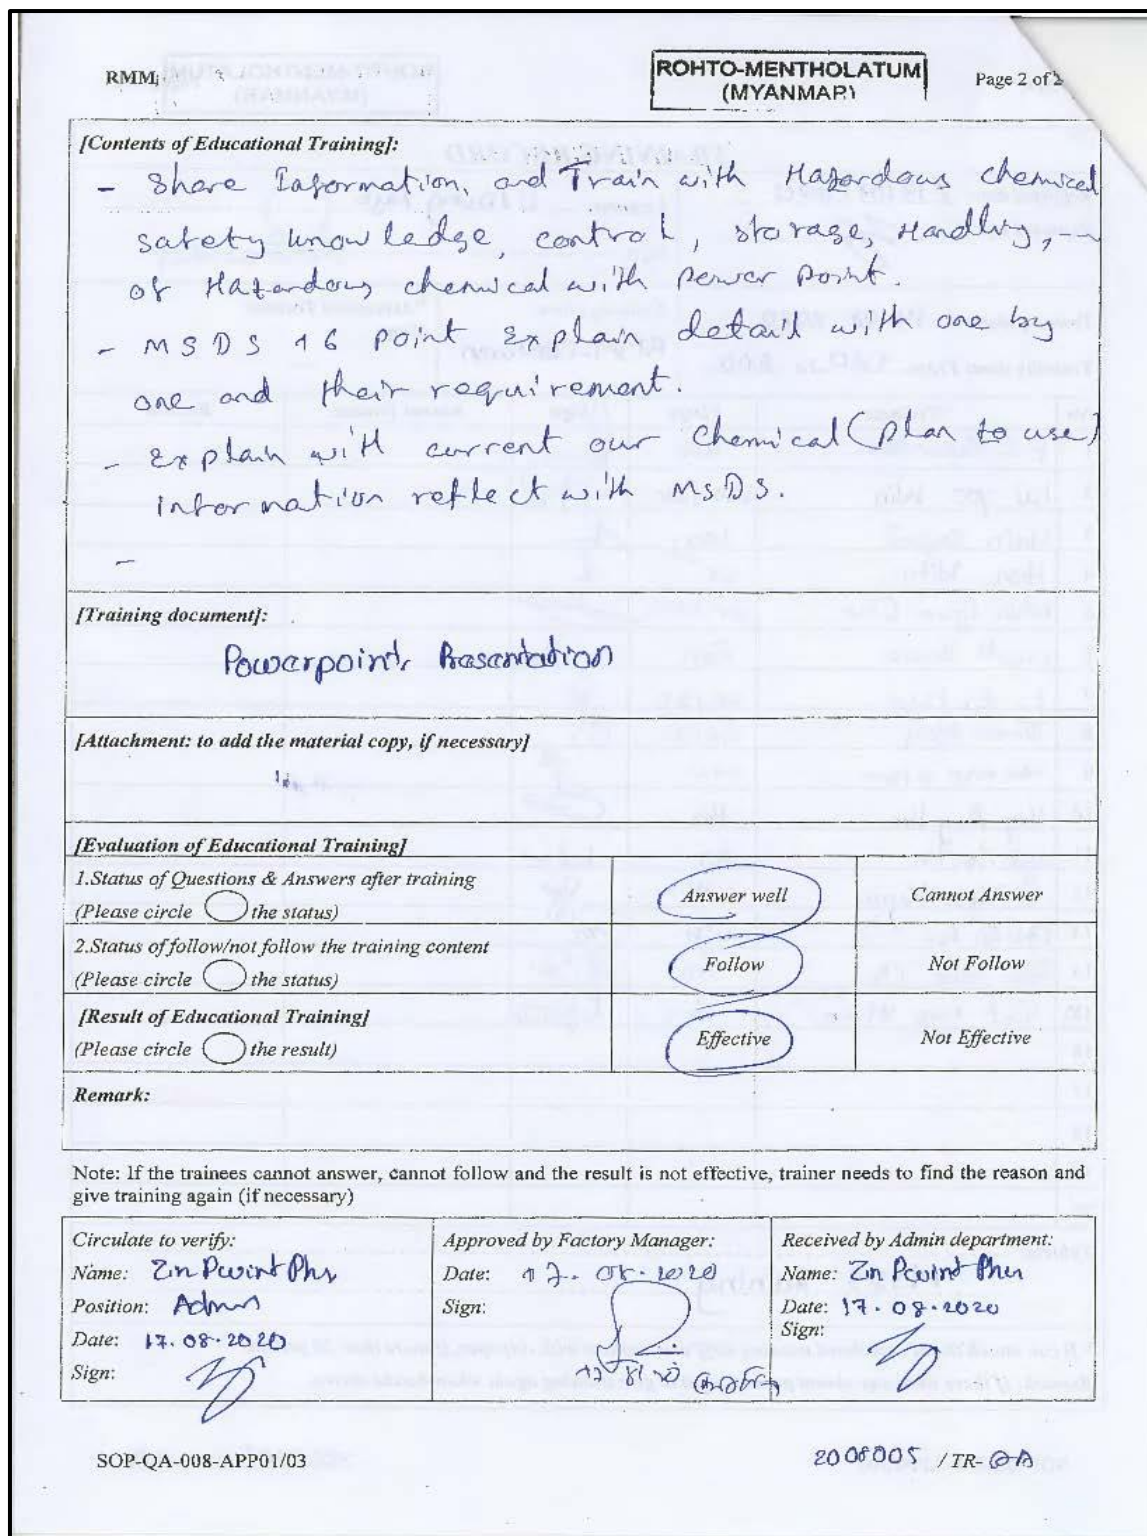 RMM
ROHTO-MENTHOLATUM
(MYANMAR)
Page 2 of 2
[Contents of Educational Training]:
- Share Information, and Train with Hazardous chemical
safety knowledge, control, storage, Handling,
of Hazardous chemical with power point.
- MSDS 16 point Explain detail with one by
one and their requirement.
- Explain with current our chemical (plan to use)
information reflect with MSDS.
-
[Training document]:
Powerpoint Presentation
[Attachment: to add the material copy, if necessary]
[Evaluation of Educational Training]
1.Status of Questions & Answers after training
(Please circle the status)
Answer well
Cannot Answer
2.Status of follow/not follow the training content
(Please circle the status)
Follow
Not Follow
[Result of Educational Training]
(Please circle the result)
Effective
Not Effective
Remark:
Note: If the trainees cannot answer, cannot follow and the result is not effective, trainer needs to find the reason and
give training again (if necessary)
Circulate to verify:
Name: Zin Pwint Phyu
Position: Admin
Date: 17.08.2020
Sign:
Approved by Factory Manager:
Date: 17.08.2020
Sign:
Received by Admin department:
Name: Zin Pwint Phyu
Date: 17.08.2020
Sign:
SOP-QA-008-APP01/03
2008005 / TR-QA